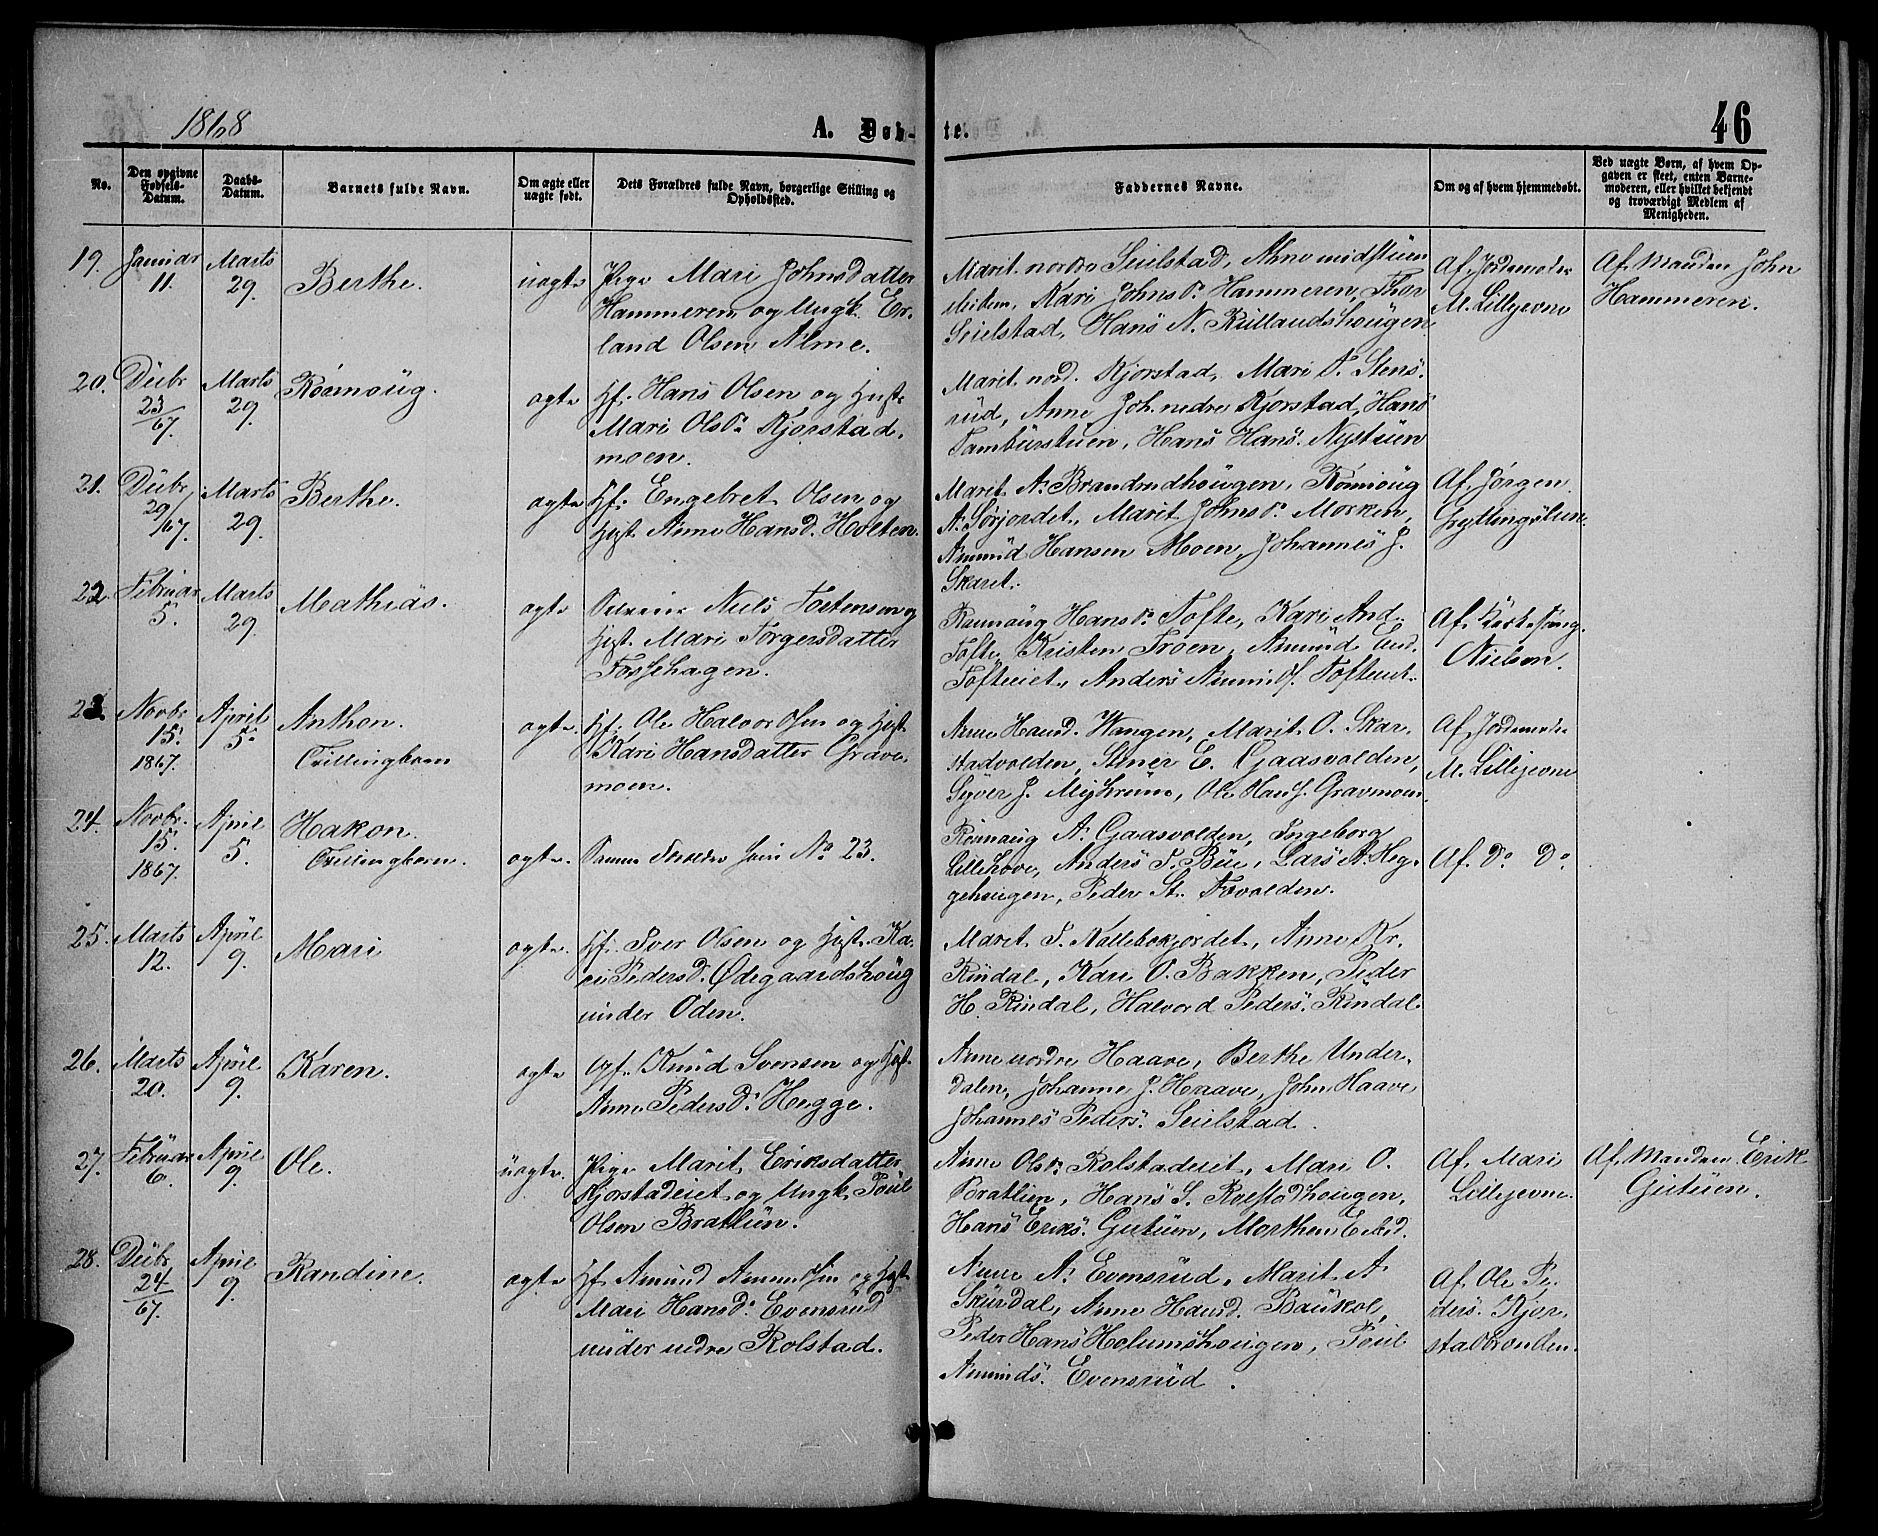 1868
A. Døb-
te.
46
No.
Den opgivne Fødsels-Datum.
Daabs-Datum.
Barnets fulde Navn.
Om ægte eller uægte født.
Dets Forældres fulde Navn, borgerlige Stilling og Opholdssted.
Faddernes Navne.
Om og af hvem hjemmedøbt.
Ved uægte Børn, af hvem Op-
gaven er skeet, enten Barne-
moderen, eller hvilket bekjendt
og troværdigt Medlem af
Menigheden.
19. Januar 11. Marts 29. Berthe. uægte
Pige Mari Johnsdatter
Hammeren og Ungk. Er-
land Olsen Alme.
Marit nordre Seielstad, Anne midstuen
ibidem, Kari Johns D. Hammeren, Thor
Seielstad, Hans N. Rullandshougen
Af Jordemoder
M. Lillejevne
Af Manden John
Hammeren.
20. Debr 23/67. Marts 29. Rønnoug. ægte
Hf. Hans Olsen og Hust.
Mari Ols D. Kjorstad-
moen.
Marit nord. Kjorstad, Mari P. Stens-
rud, Anne Joh. nedre Kjorstad, Hans
Tamburstuen, Hans Hans. Nystuen
21. Debr 29/67. Marts 29. Berthe. ægte
Hf. Engebret Olsen og
Hust. Anne Hansd. Holten.
Marit A. Brandrudhougen, Rønnoug
A. Sørjordet, Marit Johns D. Morken,
Amund Hansen Moen, Johannes J.
Skaret.
Af Jørgen
Grytlingslien
22. Februar 5. Marts 29. Mathias. ægte
Niels Tostensen og
Hust. Mari Torgersdatter
Fossehagen.
Rannoug Hans D. Tofte, Kari And.
Tofte, Kristen Troen, Amund And.
Tofteeiet, Anders Amunds. Tofteeiet.
Af Kirkesang.
Nielsen.
23. Novbr. 15. 1867. April 5. Anthon.
Tvillingbarn ægte.
Hf. Ole Halvorsen og Hust.
Kari Hansdatter Grave-
moen.
Anne Hansd. Wangen, Marit O. Skar-
stadvolden, Stiner E. Gaasvolden,
Syver J. Myhrum, Ole Hans. Gravmoen.
Af Jordemoder
M. Lillejevne
24. Novbr. 15. 1867. April 5. Hakon.
Tvillingbarn. ægte.
Samme Foreldre som No 23.
Rønnaug A. Gaasvolden, Ingeborg
Lillehove, Anders T. Bue, Lars A. Heg-
gehougen, Peder St. Fovolden.
Af Do Do
25. Marts 12. April 9. Mari ægte.
Hf. Iver Olsen og Hust. Ka-
ri Pedersd. Ødegaardshoug
under Oden.
Maret T. Kallebækjordet, Anne Kr.
Rindal, Kari O. Bakken, Peder
H. Rindal, Halvord Peders. Rindal.
26. Marts 20. April 9. Karen. ægte
Gf. Knud Svensen og Hust.
Anne Peders D. Hegge.
Anne nordre Haave, Berthe Under-
dalen, Johanne J. Haave, John Haave
Johannes Peders. Seielstad.
27. Februar 6. April 9. Ole. uægte.
Pige Marit Eriksdatter
Kjorstadeiet og Ungk. Poul
Olsen Bratlien.
Anne Ols D. Rolstadeiet, Mari O.
Bratlien, Hans S. Rolstadhougen,
Hans Eriks. Gutuen, Morthen E. ibid.
Af Mari
Lillejevne.
Af Manden Erik
Gutuen.
28. Debr 24/67. April 9. Randine. ægte
Hf. Amund Amundsen og Hust.
Mari Hansd. Evensrud
under nedre Rolstad.
Anne A. Evensrud, Marit A.
Skurdal, Anne Hansd. Baukol,
Peder Hans Holumshougen, Poul
Amunds. Evensrud.
Af Ole Pe-
ders. Kjor-
stadbronden.